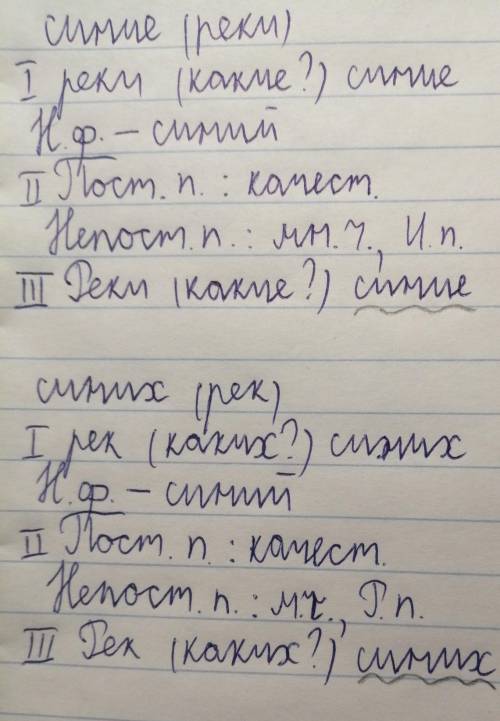 синие (реки)
I реки (какие?) синие
Н.ф. – синий
II Пост. п. : качест.
Непост. п. : мн. ч., И. п.
III Реки (какие?) синие
синих (рек)
I рек (каких?) синих
Н.ф. – синий
II Пост. п. : качест.
Непост. п. : м.ч., Р. п.
III Рек (каких?) синих